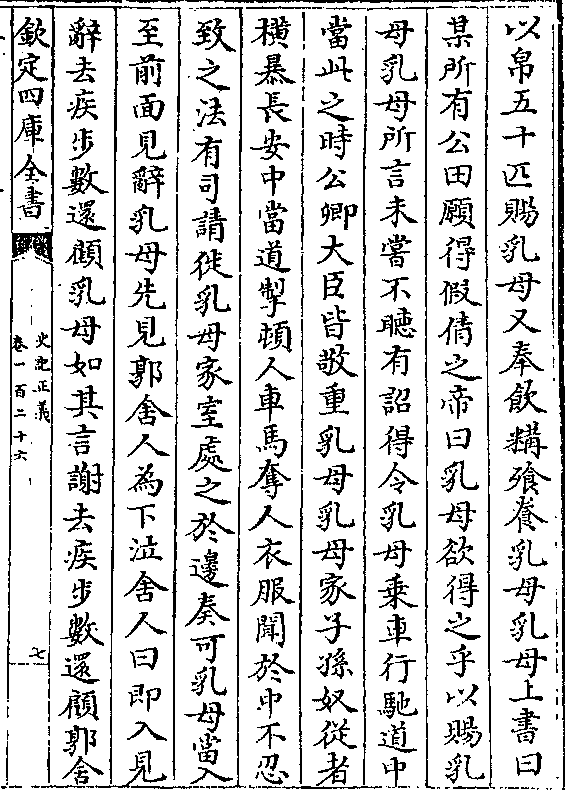 以帛五十匹賜乳母又奉飲糒飱養乳母乳母上書曰
某所有公田願得假倩之帝曰乳母欲得之乎以賜乳
母乳母所言未嘗不聽有詔得令乳母乘車行馳道中
當此之時公卿大臣皆敬重乳母乳母家子孫奴從者
横暴長安中當道掣頓人車馬奪人衣服聞於中不忍
致之法有司請徙乳母家室處之於邊奏可乳母當入
至前面見辭乳母先見郭舍人為下泣舍人曰即入見
辭去疾步數還顧乳母如其言謝去疾步數還顧郭舍
欽定四庫全書
史記正義
卷一百二十六
七